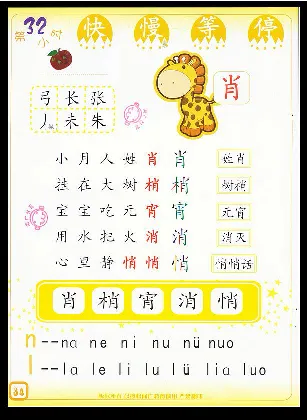 第32小时
快 慢 等 停
肖
弓 长 张
丿 未 朱
小 月 人 姓 肖 肖 姓肖
挂 在 大 树 梢 梢 树梢
宝 宝 吃 元 宵 宵 元宵
用 水 把 火 消 消 消灭
心 里 静 悄 悄 悄 悄悄话
肖 梢 宵 消 悄
n--na ne ni nu nü nuo
l--la le li lu lü lia luo
34